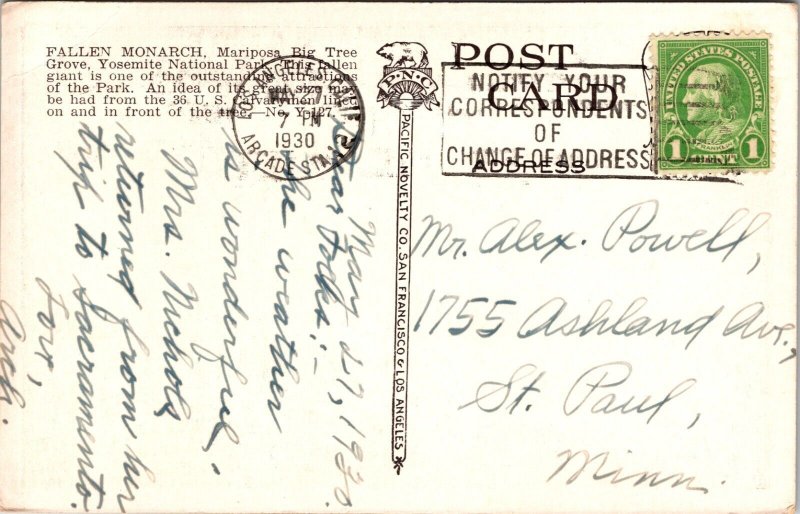 FALLEN MONARCH, Mariposa Big Tree
Grove, Yosemite National Park. This fallen
giant is one of the outstanding attractions
of the Park. An idea of its great size may
be had from the 36 U. S. Cavalrymen lined
on and in front of the tree.—No. Y-127.
P.N.C.
POST
CARD
ADDRESS
PACIFIC NOVELTY CO. SAN FRANCISCO & LOS ANGELES
LOS ANGELES
MAY
7 PM
1930
ARCADE STA.
NOTIFY YOUR
CORRESPONDENTS
OF
CHANGE OF ADDRESS
UNITED STATES POSTAGE
FRANKLIN
1 1
May 27, 1930.
Dear Folks:-
The weather
is wonderful.
Mrs. Nichols
returned from her
trip to Sacramento.
Arch.
Mr. Alex. Powell,
1755 Ashland Ave.,
St. Paul,
Minn.